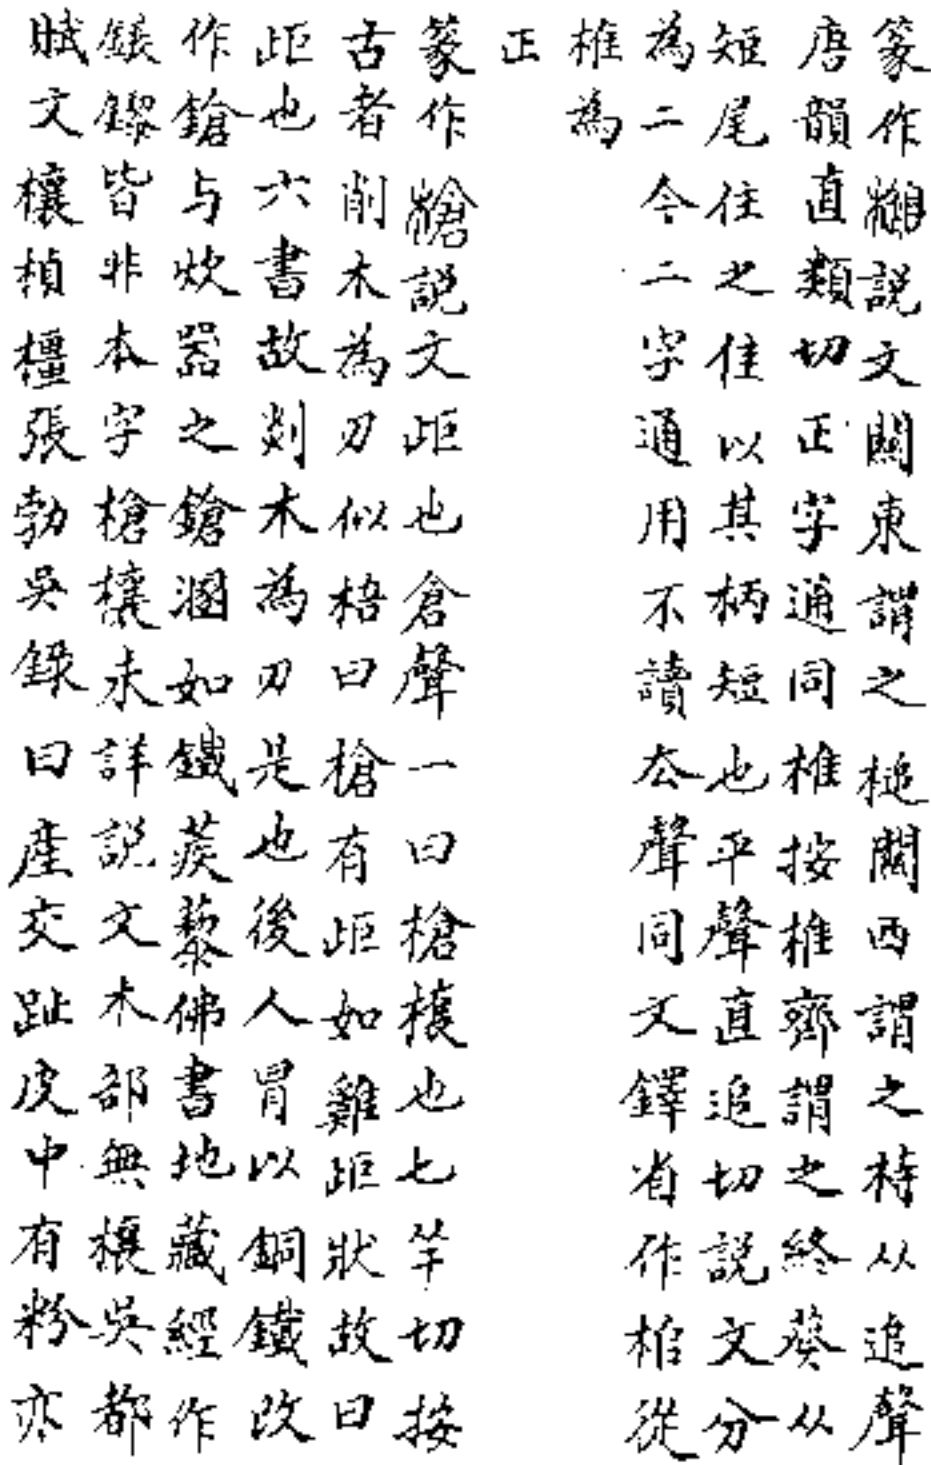 篆作㯰說文關東謂之槌關西謂之㭙从追聲
唐韻直類切正字通同椎按椎齊謂之終葵从
短尾住之住以其柄短也平聲直追切說文分
為二今二字通用不讀厺聲同文鐸省作桘從
椎為
正
篆作槍說文歫也倉聲一曰槍欀也七羊切按
古者削木為刃似梧曰槍有歫如雞歫狀故曰
歫也六書故剡木為刃是也後人冐以銅鐵改
作鎗与炊器之鎗溷如鐵蒺藜佛書地藏經作
鏒皆非本字槍欀未詳說文木部無欀吳都
賦文欀楨橿張勃吳錄曰產交趾皮中有粉亦